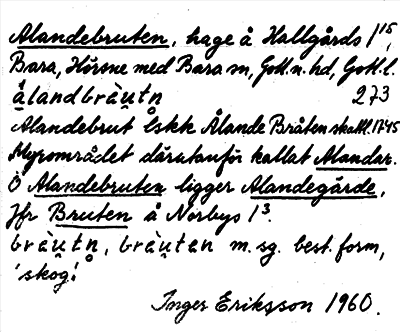 Alandebruten, hage å Hallgårds 1¹⁵,
Bara, Hörsne med Bara sn, Gotl.n. hd, Gotl.l.
å̱landbràu̯tn̥ 273
Alandebrut Lskk Ålande Bråten skattl. 1745
Myrområdet därutanför kallat Alandar.
Ö Alandebruten ligger Alandegärde,
Jfr Bruten å Norbys 1³.
bràu̯tn̥, bràu̯tən m. sg. best. form,
'skog'.
Inger Eriksson 1960.